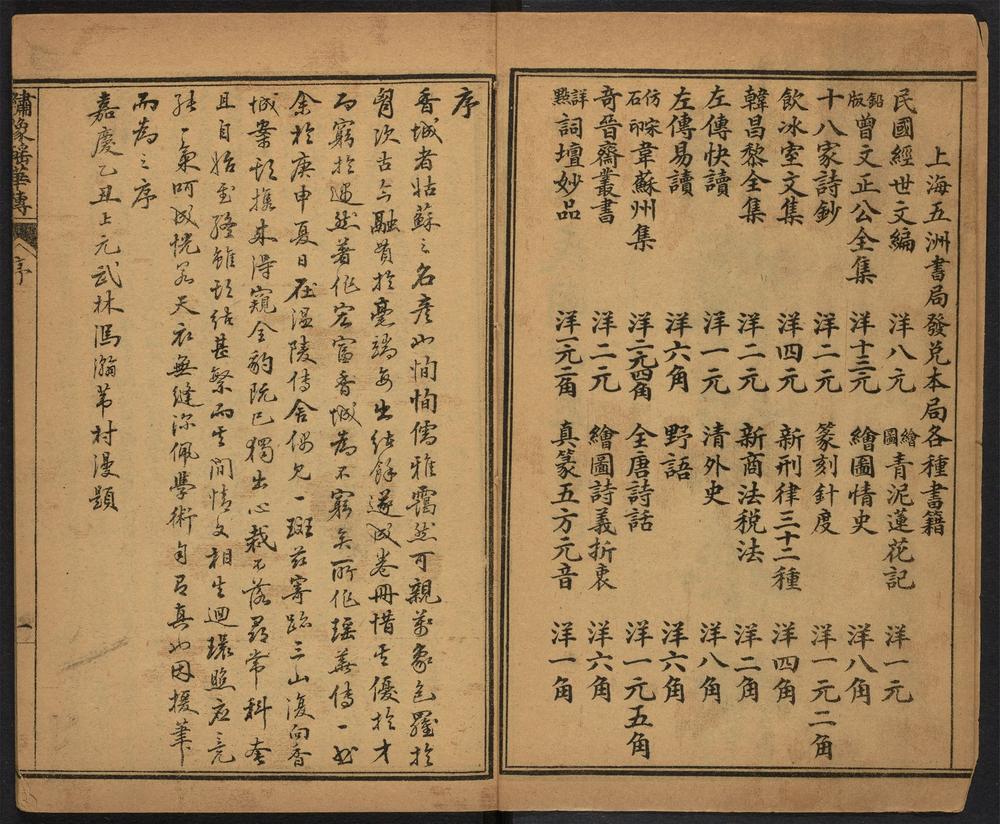 上海五洲書局發兌本局各種書籍
民國經世文編 洋八元 繪圖青泥蓮花記 洋一元
鉛版曾文正公全集 洋十三元 繪圖情史 洋八角
十八家詩鈔 洋二元 篆刻針度 洋一元二角
飲冰室文集 洋四元 新刑律三十二種 洋四角
韓昌黎全集 洋二元 新商法税法 洋二角
左傳快讀 洋一元 清外史 洋八角
左傳易讀 洋六角 野語 洋六角
仿宋石印韋蘇州集 洋二元四角 全唐詩話 洋一元五角
奇晉齋叢書 洋二元 繪圖詩義折衷 洋六角
詳點詞壇妙品 洋一元二角 真篆五方元音 洋一角
序
香城者姑蘇之名彦也恂恂儒雅靄然可親萬象包羅於
胷次古今融貫於毫端每出緒餘遂成卷冊惜其優於才
而窮於遇然著作宏富香城為不窮矣所作瑶華傳一書
余於庚申夏日在温陵傳舍偶見一斑兹寄跡三山復向香
城案頭攜來得窺全豹既已獨出心裁不落尋常科套
且自始至終雖頭緒甚繁而其間情文相生迴環照應竟
能一氣呵成恍若天衣無縫深佩學術自有真也因援筆
而為之序
嘉慶乙丑上元武林馮瀚芾村漫題
繡像瑶華傳 序 一